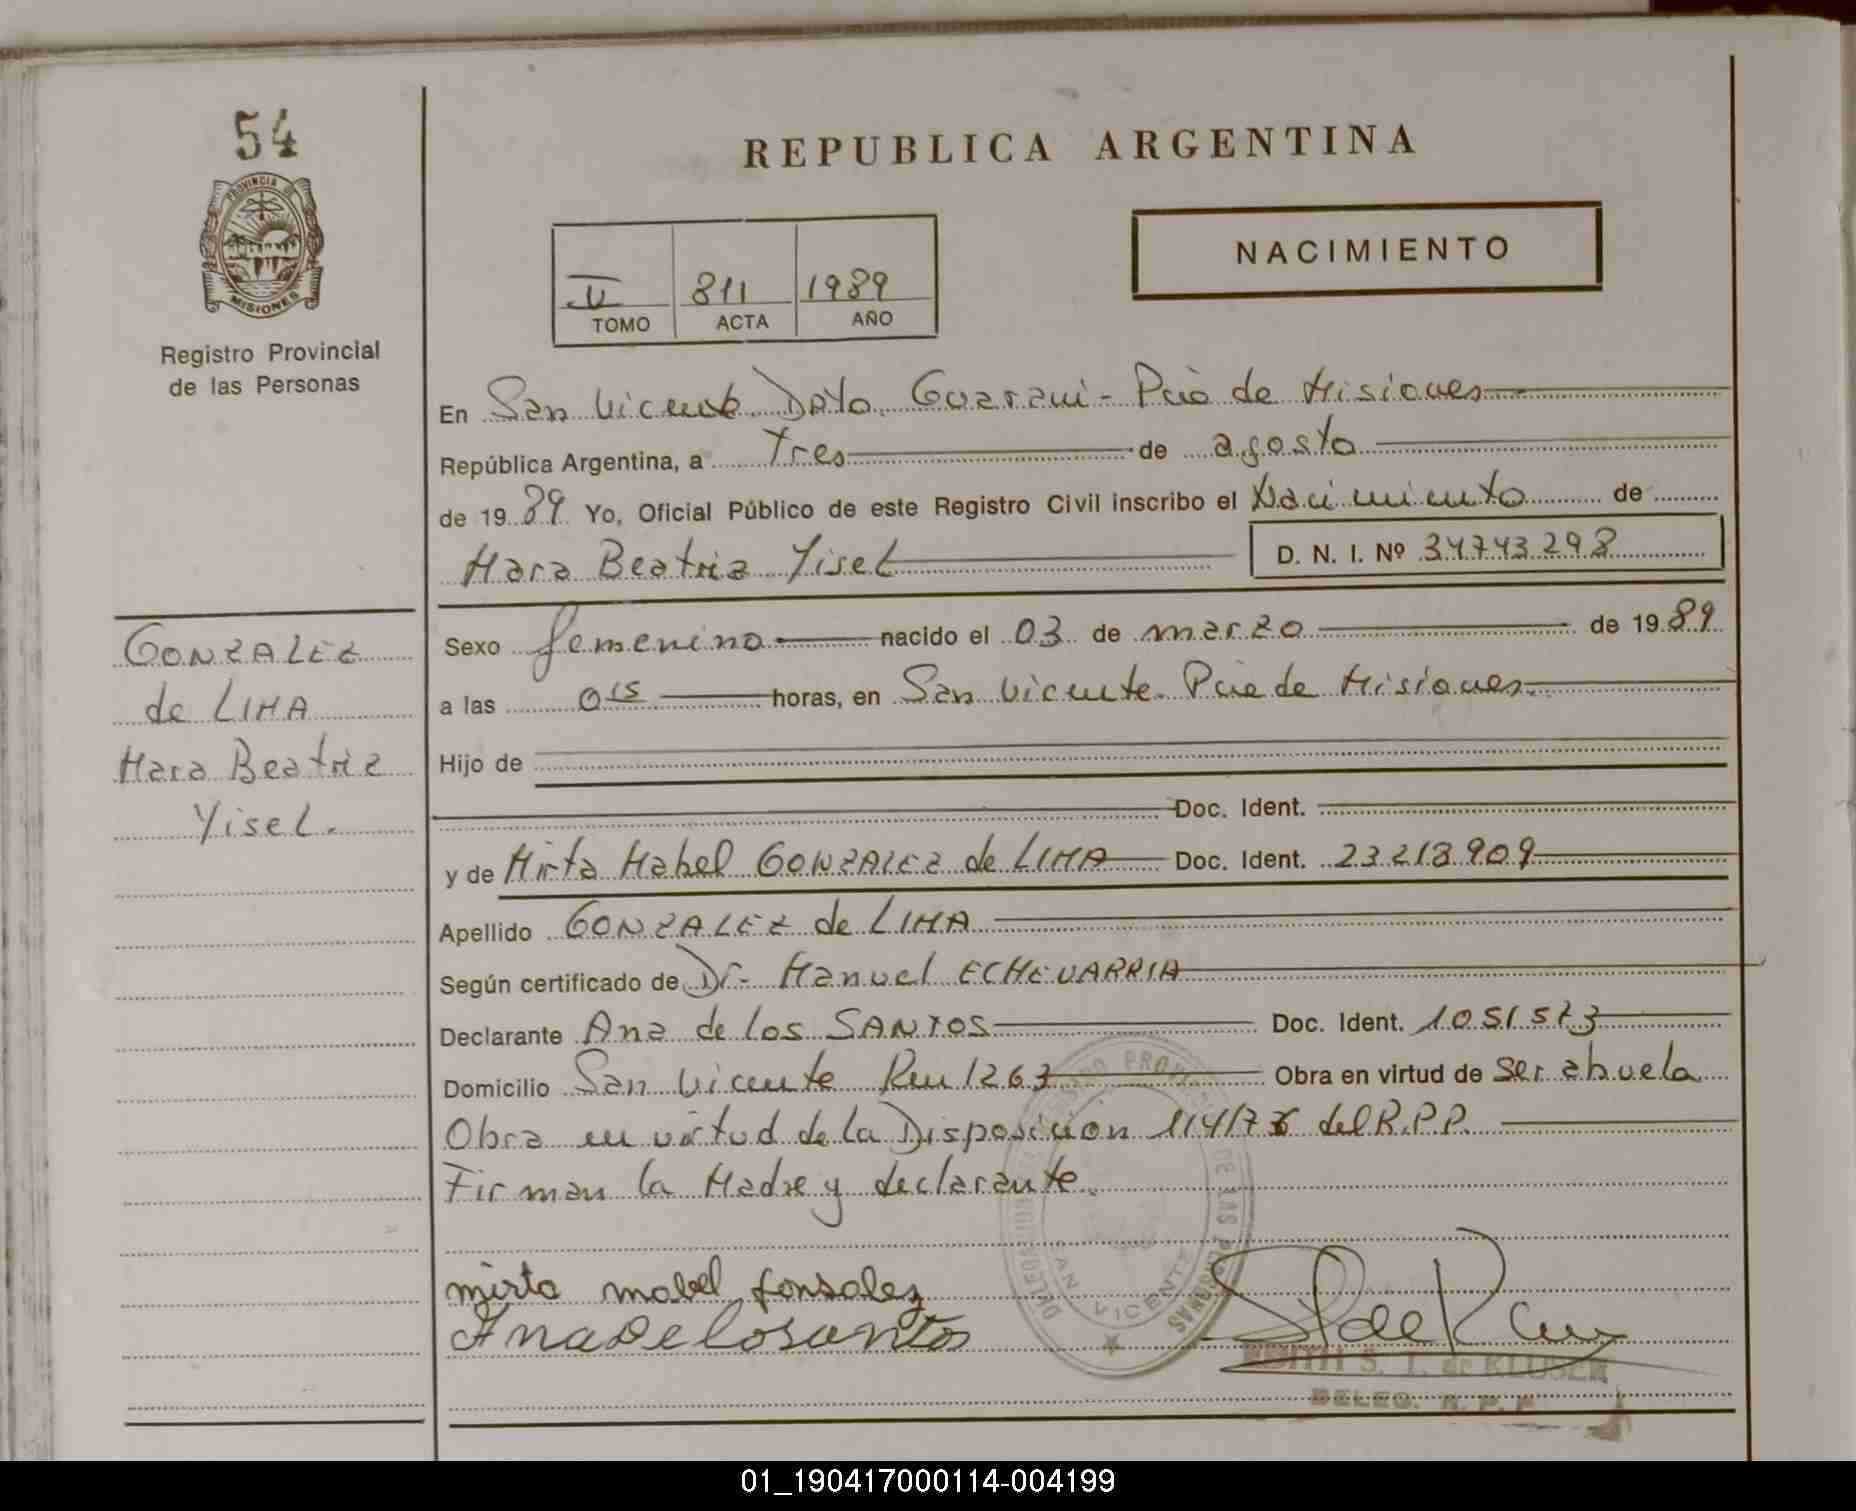 54
PROVINCIA DE
MISIONES
Registro Provincial
de las Personas
GONZALEZ
de LIMA
Mara Beatriz
Yisel.
REPUBLICA ARGENTINA
II 811 1989
TOMO ACTA AÑO
NACIMIENTO
En San Vicente Dpto. Guarani - Pcia de Misiones
República Argentina, a Tres de agosto
de 1989 Yo, Oficial Público de este Registro Civil inscribo el Nacimiento de
Mara Beatriz Yisel D. N. I. Nº 34743298
Sexo femenino nacido el 03 de marzo de 1989
a las 0 15 horas, en San Vicente. Pcia de Misiones.
Hijo de
Doc. Ident.
y de Mirta Mabel GONZALEZ de LIMA Doc. Ident. 23218909
Apellido GONZALEZ de LIMA
Según certificado de Dr. Manuel ECHEVARRIA
Declarante Ana de los SANTOS Doc. Ident. 1051573
Domicilio San Vicente Km 1263 Obra en virtud de ser abuela
Obra en virtud de la Disposicion 114/76 del R.P.P.
Firman la Madre y declarante.
mirta mabel gonsalez
Ana de lo santos
DELEGACION REGISTRO PROVINCIAL DE LAS PERSONAS
SAN VICENTE
EDITH S. T. de KLUSEN
DELEG. R. P. P.
01_190417000114-004199